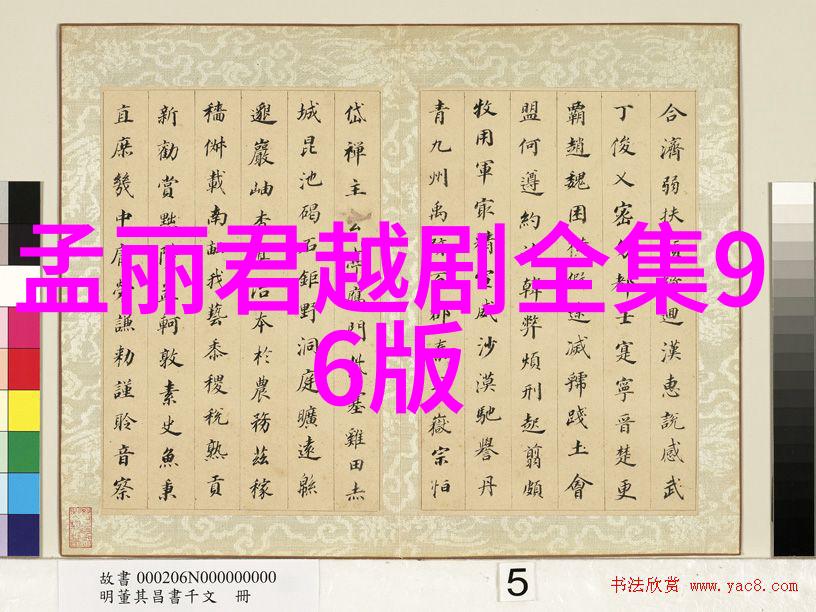 孟丽君越剧全集9
6版
合濟弱扶迴漢惠說感武
丁俊乂密士寔寧晉楚更
霸趙魏困途滅虢踐土會
盟何遵約韓弊煩刑起翦頗
牧用軍最精宣威沙漠馳譽丹
青九州禹郡秦嶽宗恒
岱禪主門雞田赤
城昆池碣石鉅野洞庭曠遠緜
邈巖岫杳本於農務茲稼
穡俶載南畝我藝黍稷稅熟貢
新勸賞黜孟軻敦素史魚秉
直庶幾中庸勞謙勑謹聆音察
故書 000206N000000000
明董其昌書千文 冊
5
书法欣赏 www.yac8.com